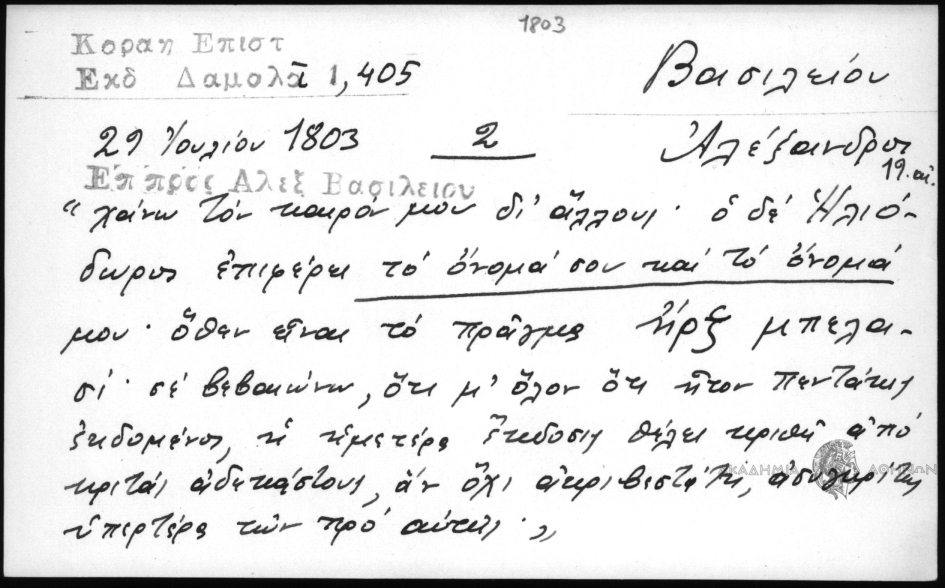 1803
Κοραη Επιστ
Εκδ Δαμαλᾶ 1,405
Βασιλείου
29 Ἰουλίου 1803 2 Ἀλέξανδρος
19. αἰ.
Επ προς Αλεξ Βασιλειου
"χάνω τόν καιρόν μου δι' ἄλλους· ὁ δέ Ἡλιό-
δωρος ἐπιφέρει τό ὄνομά σου καί τό ὄνομά
μου· ὅθεν εἶναι τό πρᾶγμα μπελα-
σί· σέ βεβαιώνω, ὅτι μ' ὅλον ὅτι ἦτον πεντάκις
ἐκδομένος, ἡ ἡμετέρα ἔκδοσις θέλει κριθῆ ἀπό
κριτάς ἀδεκάστους, ἄν ὄχι ἀκριβεστάτη, ἀσυγκρίτως
ὑπερτέρα τῶν πρό αὐτῆς·"
ΑΚΑΔΗΜΙΑ ΑΘΗΝΩΝ